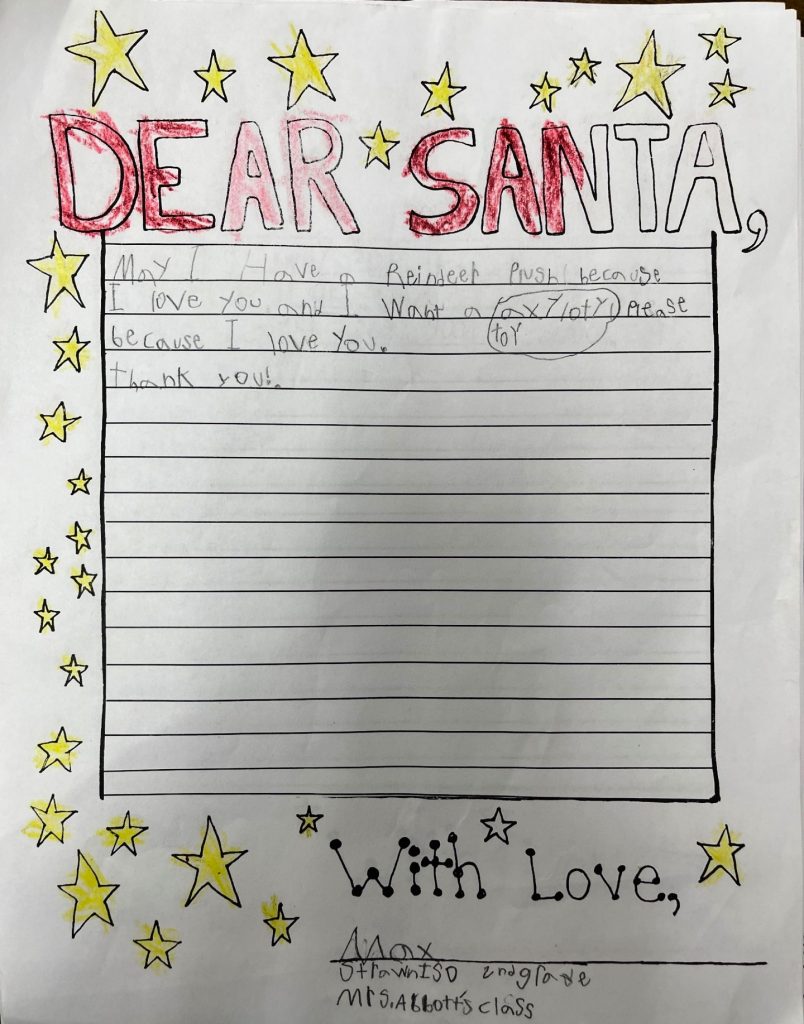 DEAR SANTA,
May I Have a Reindeer Plush because
I love you and I Want a axylotyl Please
toy
because I love You.
thank you!.
With Love,
Max
Strawn ISD 2nd grade
Mrs. Abbott's class